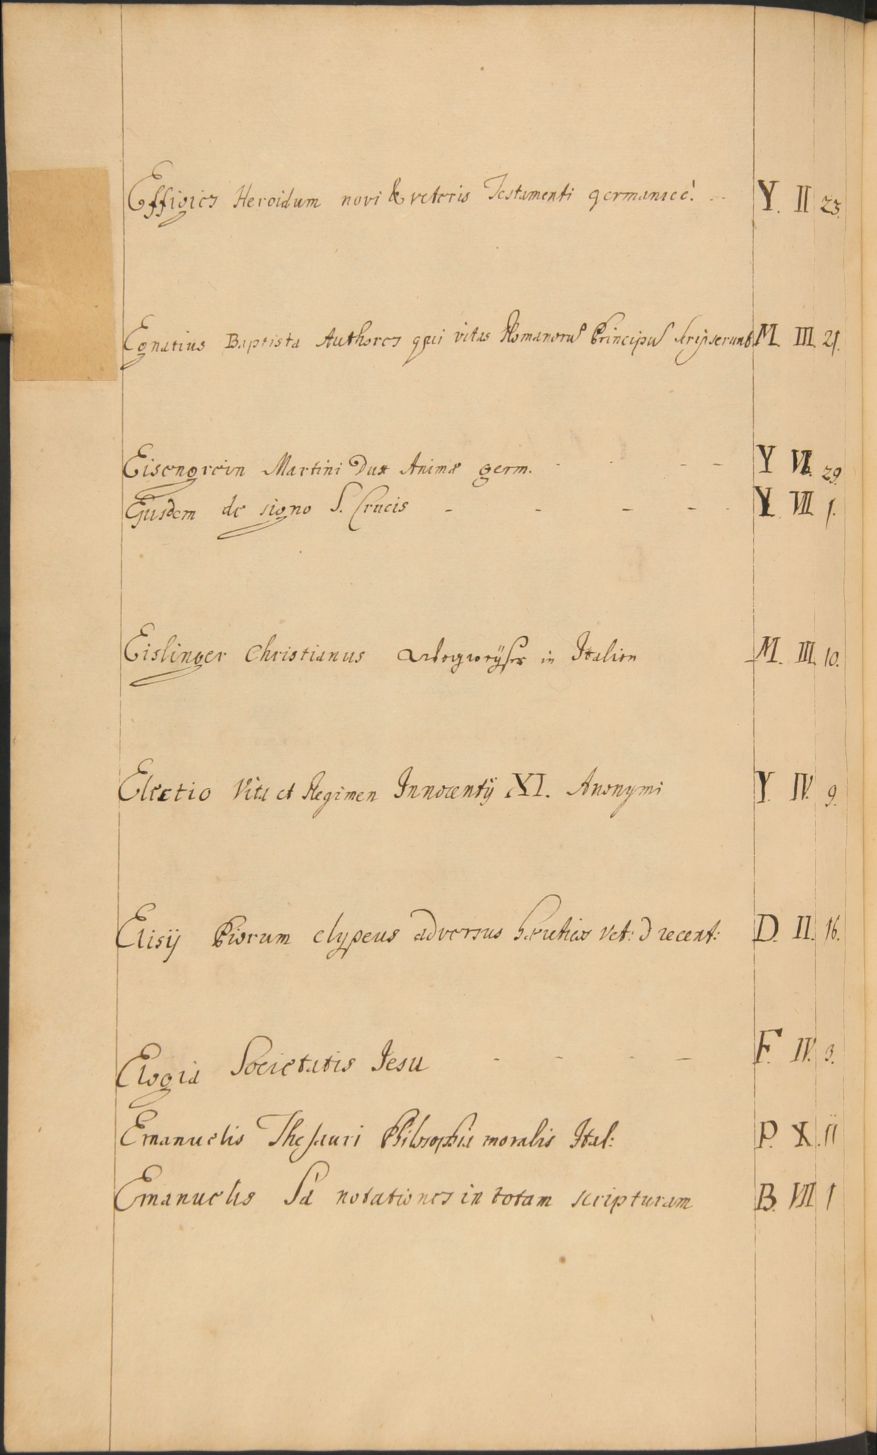 Effigies Heroidum novi & veteris Testamenti germanicè. Y. II 23.
Egnatius Baptista Authores qui vitas Romanorũ Principũ scripserunt M. III. 21.
Eisengrein Martini Dux Animæ germ. - - - Y VI. 29
Ejusdem de signo S. Crucis - - - - Y VII 1.
Eislinger Christianus Wegweÿser in Italien M. III. 10.
Electio Vita et Regimen Innocentÿ XI. Anonymi Y. IV. 9.
Elisÿ Piorum clypeus adversus hæreticos Vet: & recent: D. II. 16.
Elogia Societatis Jesu - - - - F. IV. 3.
Emanuelis Thesauri Philosophia moralis Ital: P. X. 11
Emanuelis Sa notationes in totam scripturam B. VII 1